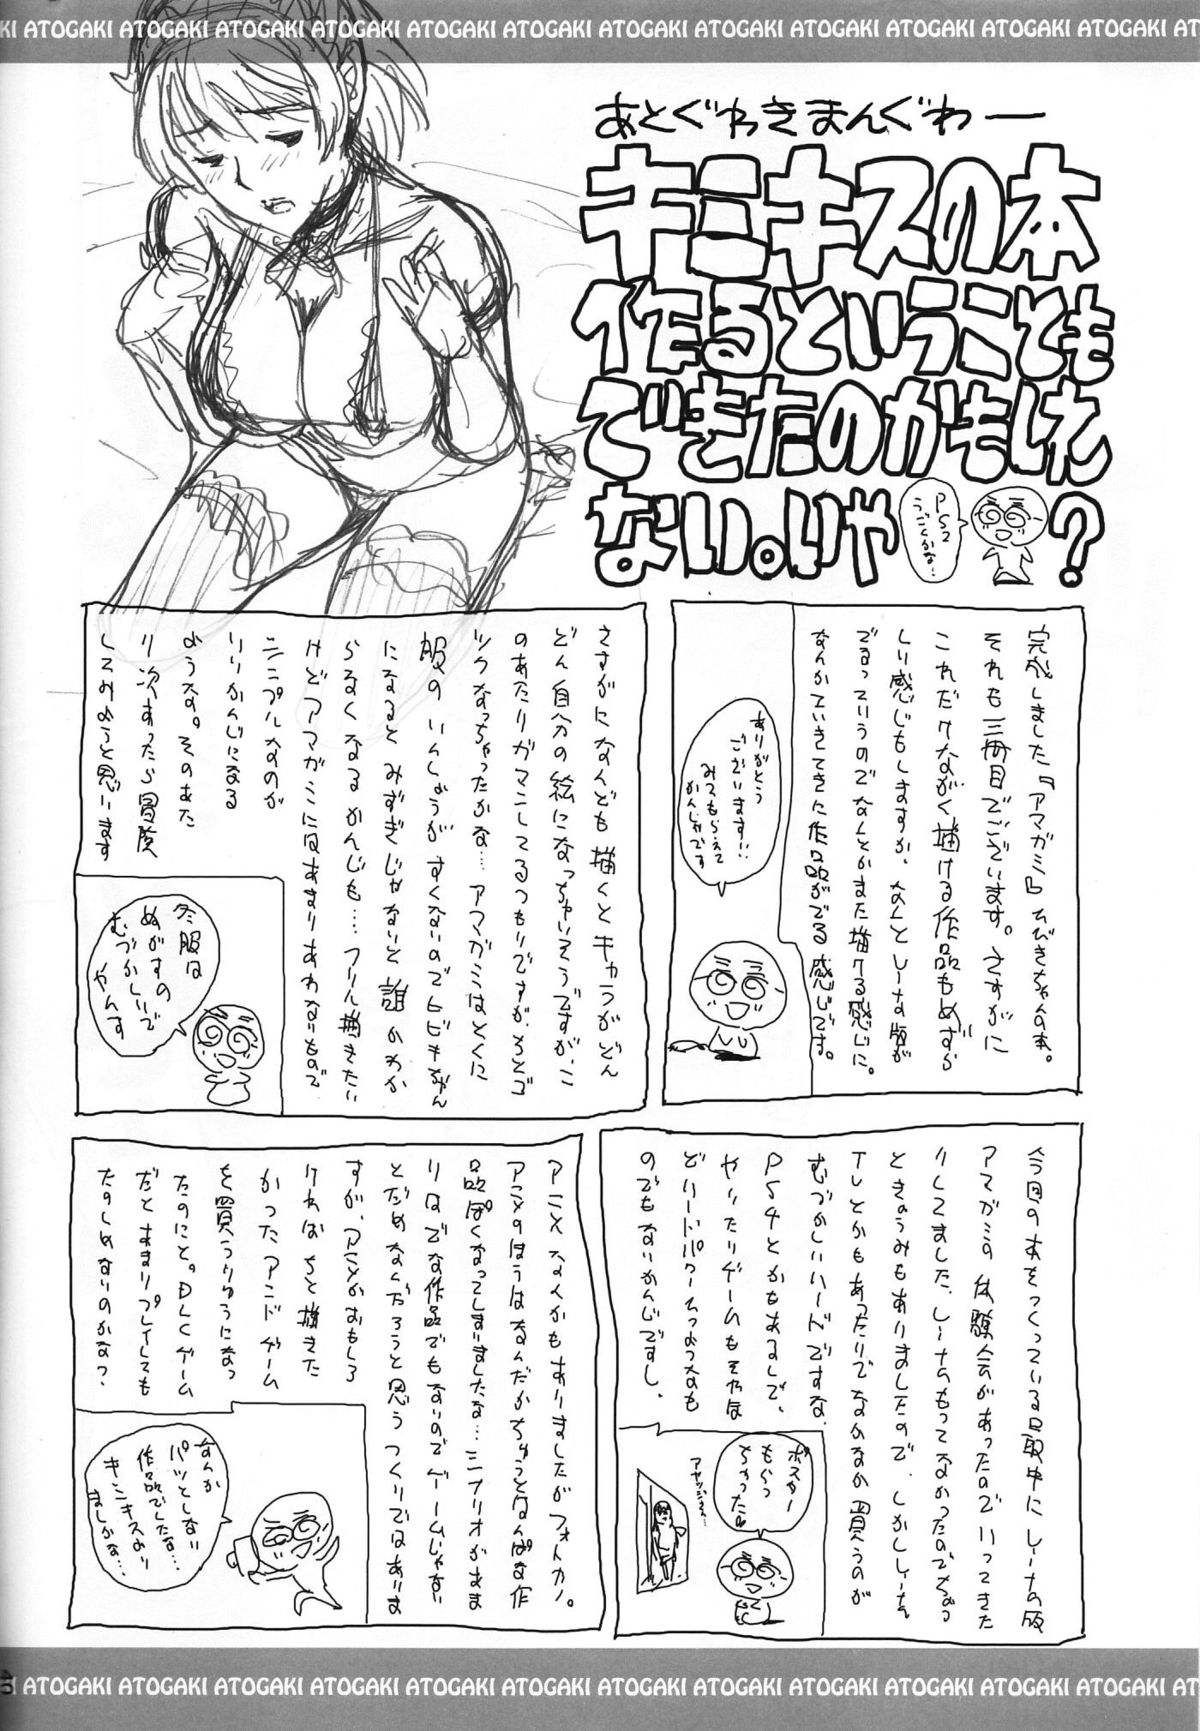 ATOGAKI ATOGAKI ATOGAKI ATOGAKI ATOGAKI ATOGAKI ATOGAKI ATOGAKI ATOGAKI ATOGAKI
あとぐわきまんぐわー
キミキスの本
作るということも
できたのかもしれ
ない。いや
PS2
うごくかな…
？
完成しました『アマガミ』ひびきちゃん本。
それも三冊目でございます。さすがに
これだけながく描ける作品もめずら
しい感じもしますが、なんとしーな版が
でるっていうのでなんとかまた描ける感じに。
なんかていきてきに作品がでる感じです。
ありがとう
ございます!!
みてもらえて
かんしゃです
さすがになんども描くとキャラがどん
どん自分の絵になっちゃいそうですが、こ
のあたりガマンしてるつもりですが、ちとゴ
ツクなっちゃったかな…アマガミはとくに
服のいんしょうがすくないのでヒビキちゃん
になるとみずぎじゃないと誰かわか
らなくなるかんじも…フリル描きたい
けどアマガミにはあまりあわないもので
シンプルなのが
いいかんじになる
ような。そのあた
り次あったら冒険
してみようと思います
冬服は
ぬがすの
むづかしいで
やんす
今回の本をつくっている最中にしーなの版
アマガミの体験会があったのでいってきた
りしてました、しーなもってなかったのでちょっ
ときょうみもありましたので、しかししーなん
TLとかもあったりでなかなか買うのが
むづかしいハードですな、
PS4とかもあるしで、
やいたりゲームもそやな
どハードパワーつっよつなも
のでもないかんじですし。
ポスター
もらっ
ちゃった
アニメなんかもありましたがフォトカノ。
アニメのほうはなんだかちゅうとはんぱな作
品ぽくなってしまいましたな…シナリオがあま
りはでな作品でもないのでゲームじゃない
とだめなんだろうと思うつくりではありま
すが、アニメがおもしろ
ければちと描きた
かったアンドゲーム
を買うりゆうになっ
たのにと。DLCゲーム
だとあまりプレイしても
たのしめないのかな？
なんか
パッとしない
作品でしたな…
キミキスより
ましかな…
40
ATOGAKI ATOGAKI ATOGAKI ATOGAKI ATOGAKI ATOGAKI ATOGAKI ATOGAKI ATOGAKI ATOGAKI